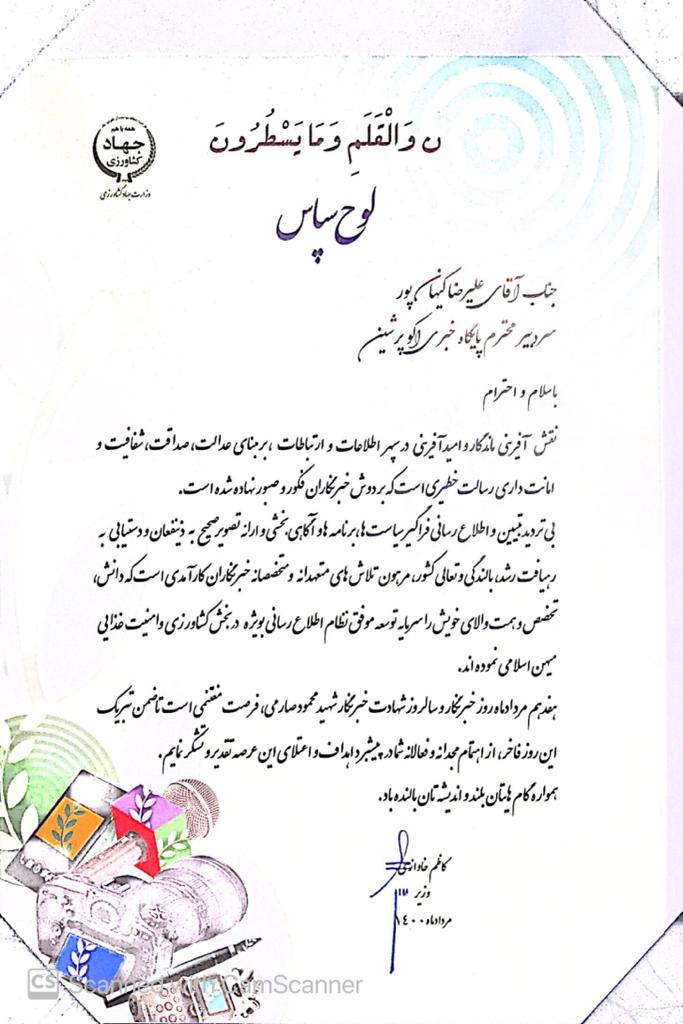 ن وَالْقَلَمِ وَمَا يَسْطُرُونَ
همه با هم
جهاد
کشاورزی
وزارت جهاد کشاورزی
لوح سپاس
جناب آقای علیرضا کیهان پور
سردبیر محترم پایگاه خبری اکو پرشین
باسلام و احترام
نقش آفرینی ماندگار و امیدآفرینی در سپهر اطلاعات و ارتباطات ، بر مبنای عدالت، صداقت، شفافیت و
امانت داری رسالت خطیری است که بر دوش خبرنگاران فکور و صبور نهاده شده است.
بی تردید تبیین و اطلاع رسانی فراگیر سیاست ها، برنامه ها و آگاهی بخشی و ارائه تصویر صحیح به ذینفعان و دستیابی به
رهیافت رشد، بالندگی و تعالی کشور، مرهون تلاش های متعهدانه و متخصصانه خبرنگاران کارآمدی است که دانش،
تخصص و همت والای خویش را سرمایه توسعه موفق نظام اطلاع رسانی بویژه در بخش کشاورزی و امنیت غذایی
میهن اسلامی نموده اند.
هفدهم مردادماه روز خبرنگار و سالروز شهادت خبرنگار شهید محمود صارمی، فرصت مغتنمی است تا ضمن تبریک
این روز فاخر، از اهتمام مجدانه و فعالانه شما در پیشبرد اهداف و اعتلای این عرصه تقدیر و تشکر نمایم.
همواره گام هایتان بلند و اندیشه تان بالنده باد.
کاظم خاوازی
وزیر
مردادماه ۱۴۰۰
CS Scanned with CamScanner